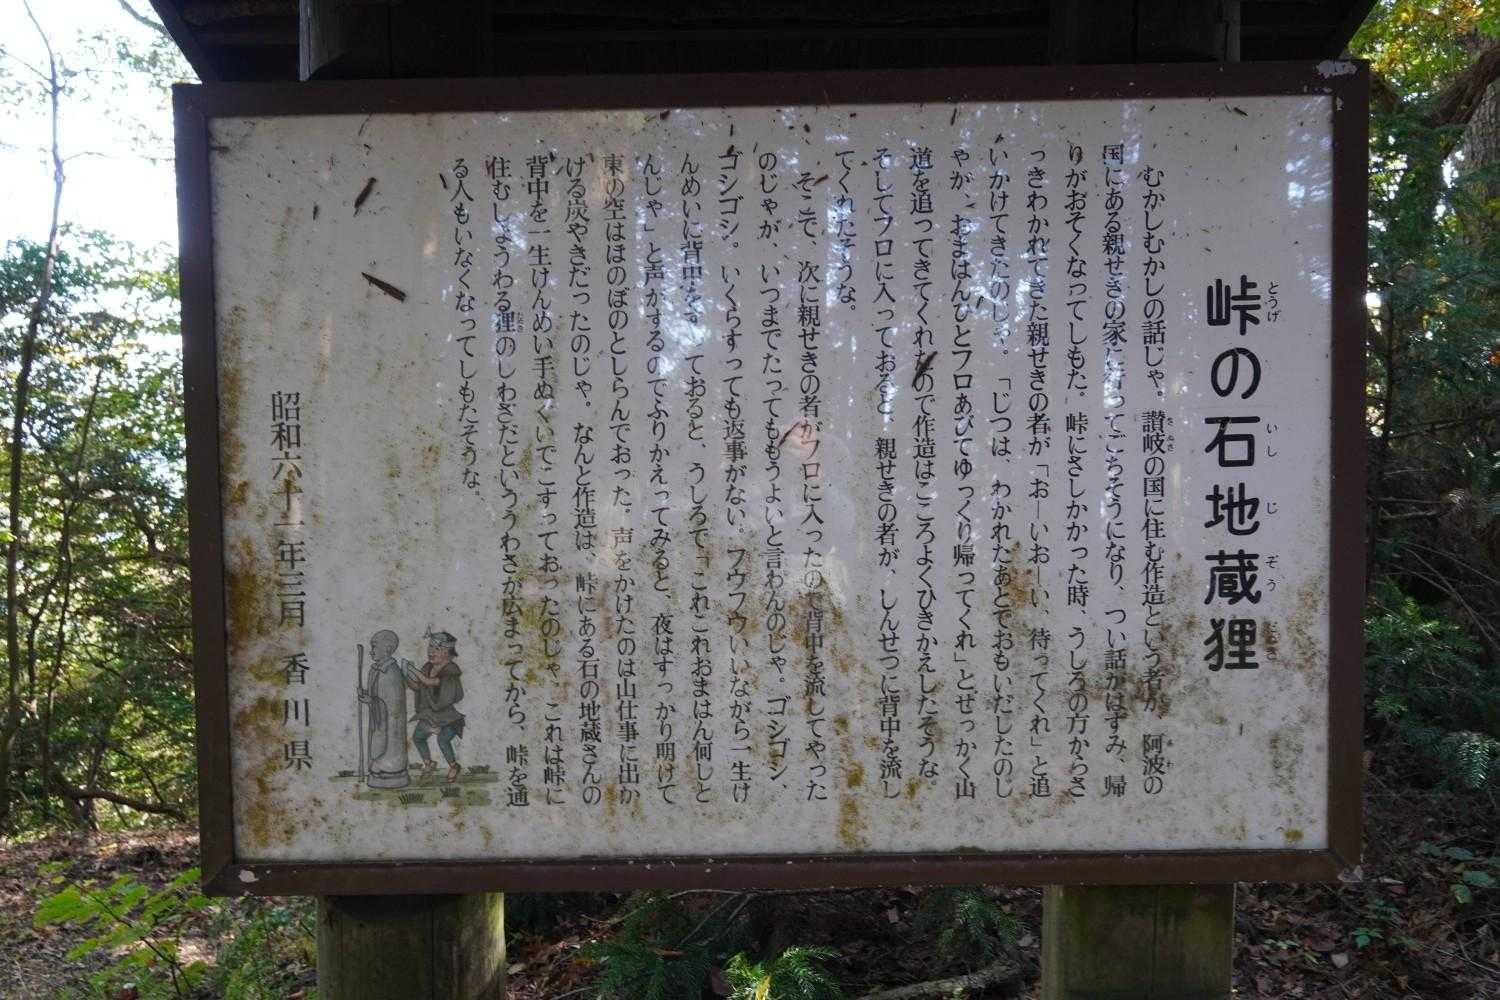 峠の石地蔵狸
とうげ いし じ ぞう
むかしむかしの話じゃ。讃岐の国に住む作造という者が、阿波の
さぬき あわ
国にある親せきの家に行ってごちそうになり、つい話がはずみ、帰
りがおそくなってしもた。峠にさしかかった時、うしろの方からさ
っきわかれてきた親せきの者が「おーいおーい、待ってくれ」と追
いかけてきたのじゃ。「じつは、わかれたあとでおもいだしたのじ
ゃが、おまはんひとフロあびてゆっくり帰ってくれ」とせっかく山
道を追ってきてくれたので作造はこころよくひきかえしたそうな。
そしてフロに入っておると、親せきの者が、しんせつに背中を流し
てくれたそうな。
そこで、次に親せきの者がフロに入ったので背中を流してやった
のじゃが、いつまでたってももうよいと言わんのじゃ。ゴシゴシ、
ゴシゴシ。いくらすっても返事がない。フウフウいいながら一生け
んめいに背中を ておると、うしろで「これこれおまはん何しと
んじゃ」と声がするのでふりかえってみると、夜はすっかり明けて
東の空はほのぼのとしらんでおった。声をかけたのは山仕事に出か
ける炭やきだったのじゃ。なんと作造は、峠にある石の地蔵さんの
背中を一生けんめい手ぬぐいでこすっておったのじゃ。これは峠に
住むしょうわる狸のしわざだといううわさが広まってから、峠を通
たぬき
る人もいなくなってしもたそうな。
昭和六十一年三月 香川県